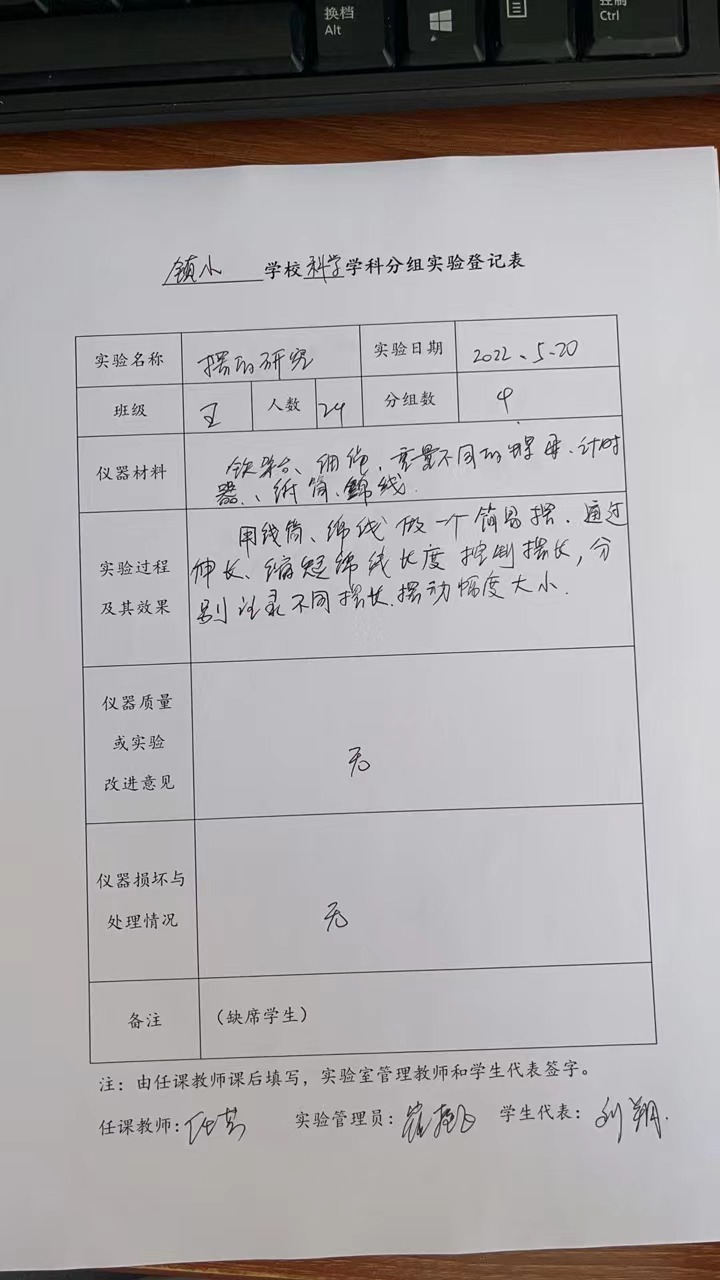 换档
Alt
控制
Ctrl
镇小 学校科学学科分组实验登记表
实验名称 摆的研究 实验日期 2022.5.20
班级 五 人数 24 分组数 4
仪器材料 铁架台、细绳,变量不同的螺母、计时
器、、纸筒、鎴线.
实验过程
及其效果
用线筒、绵线做一个简易摆.通过
伸长、缩短绵线长度控制摆长,分
别记录不同摆长.摆动幅度大小.
仪器质量
或实验
改进意见
无
仪器损坏与
处理情况
无
备注 (缺席学生)
注:由任课教师课后填写,实验室管理教师和学生代表签字。
任课教师: 实验管理员: 学生代表:刘翔.